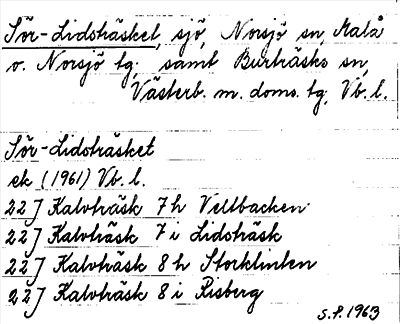 Sör-Lidsträsket, sjö, Norsjö sn, Malå
o. Norsjö tg; samt Burträsks sn,
Västerb. m. doms. tg, Vb. l.
Sör-Lidsträsket
ek (1961) Vb. l.
22J Kalvträsk 7h Vellbacken
22J Kalvträsk 7i Lidsträsk
22J Kalvträsk 8h Storklinten
22J Kalvträsk 8i Risberg
S.P. 1963